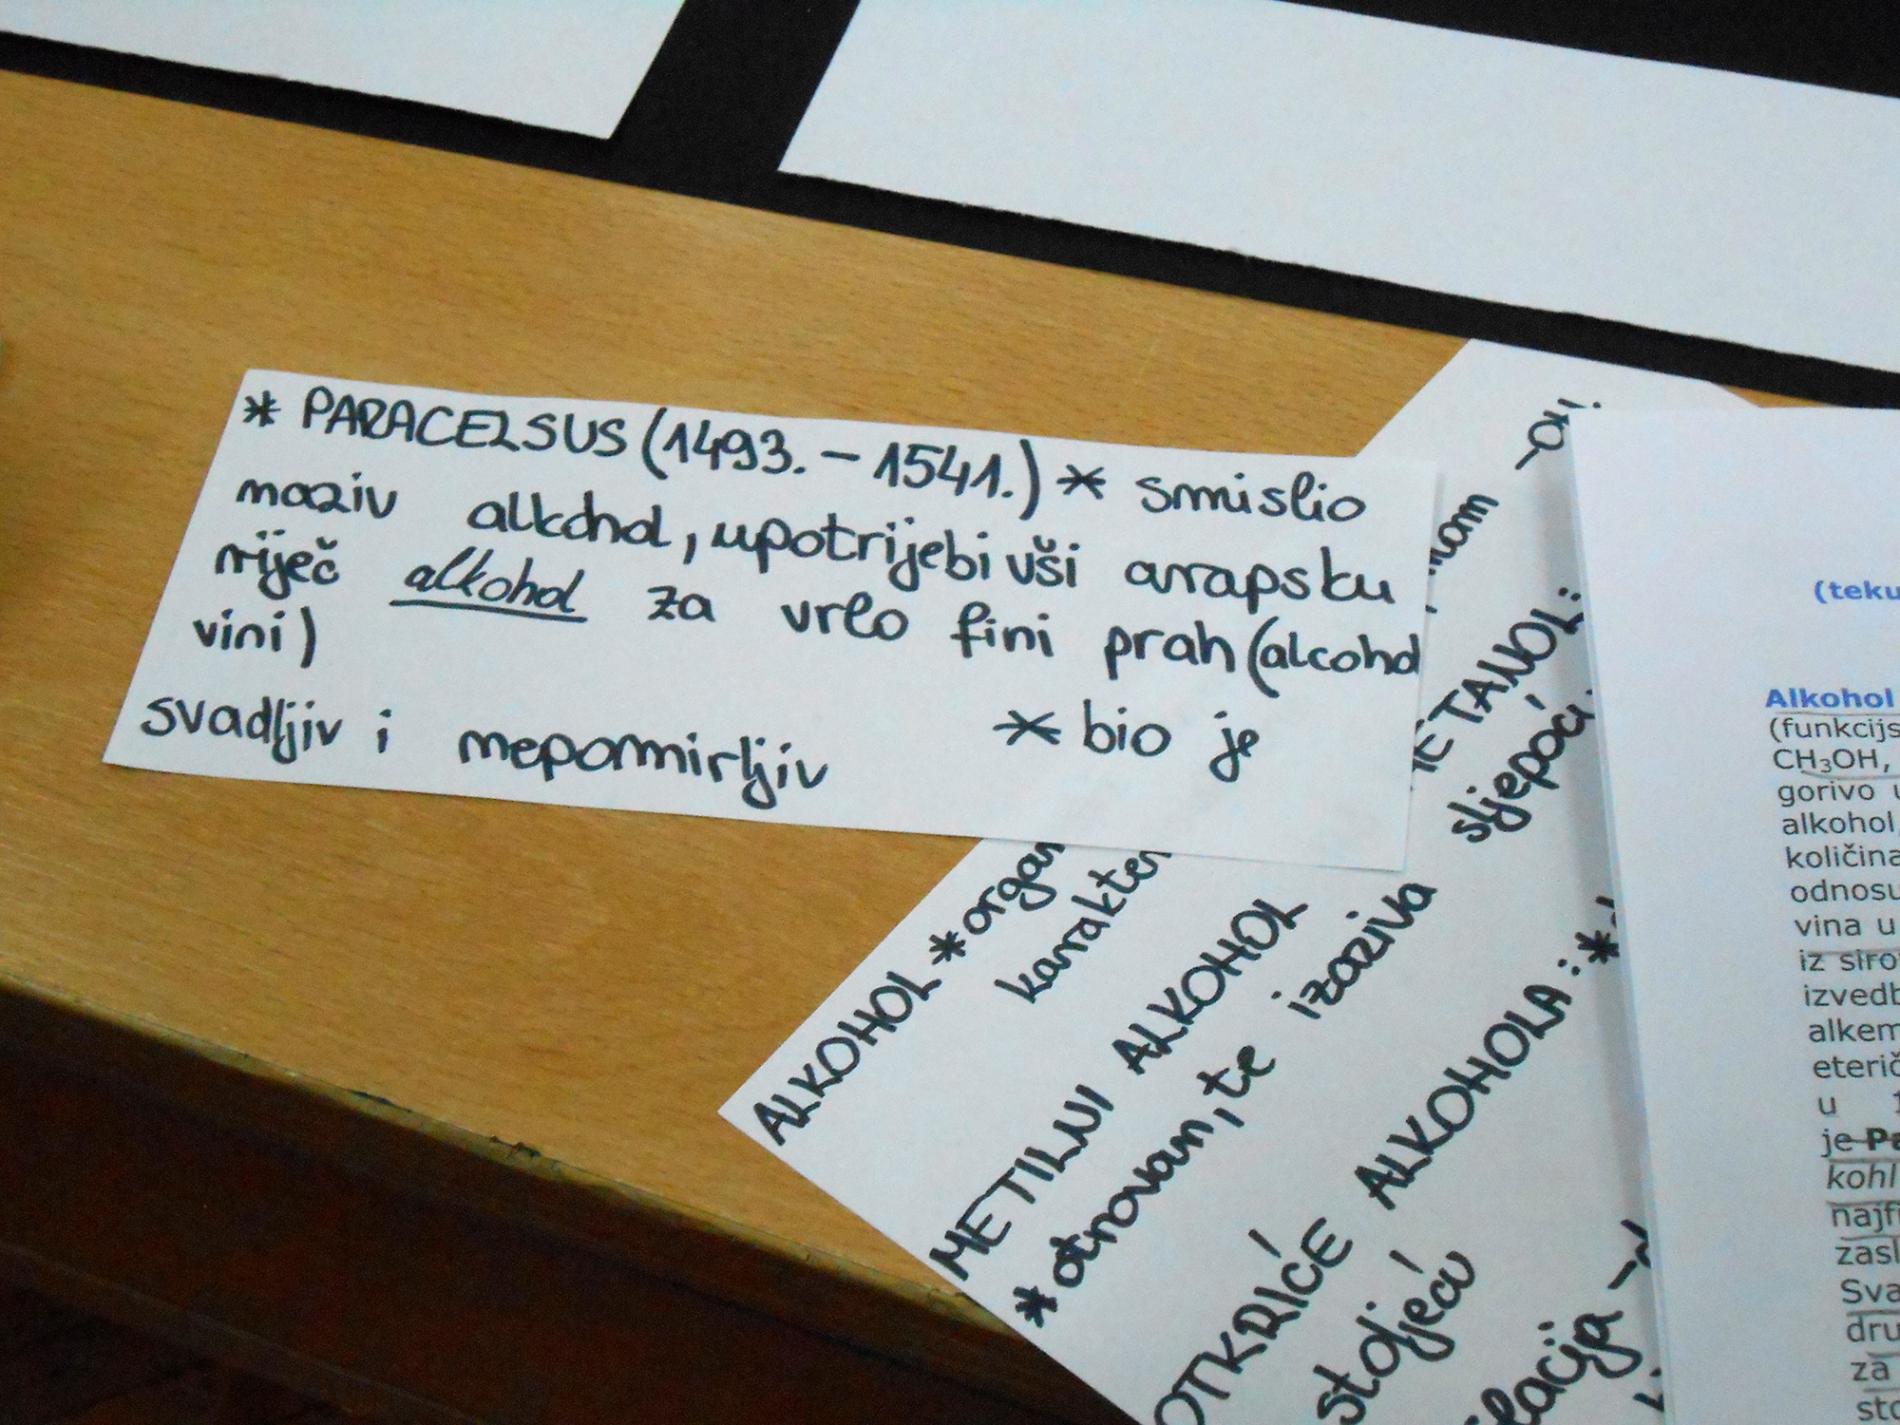 * PARACELSUS (1493. – 1541.) * smislio
naziv alkohol, upotrijebivši arapsku
riječ alkohol za vrlo fini prah (alcohol
vini)
* bio je
svadljiv i nepomirljiv
ALKOHOL * organ
karakter
METILNI ALKOHOL
METANOL:
* otrovan, te izaziva sljepoću
OTKRIĆE ALKOHOLA: *
stoljeću
-OH.
(teku
Alkohol
(funkcijs
CH₃OH,
gorivo u
alkohol
količina
odnosu
vina u
iz siro
izvedb
alkem
eterič
u 1
je Pa
kohl
najfi
zasl
Sva
dru
za
sto